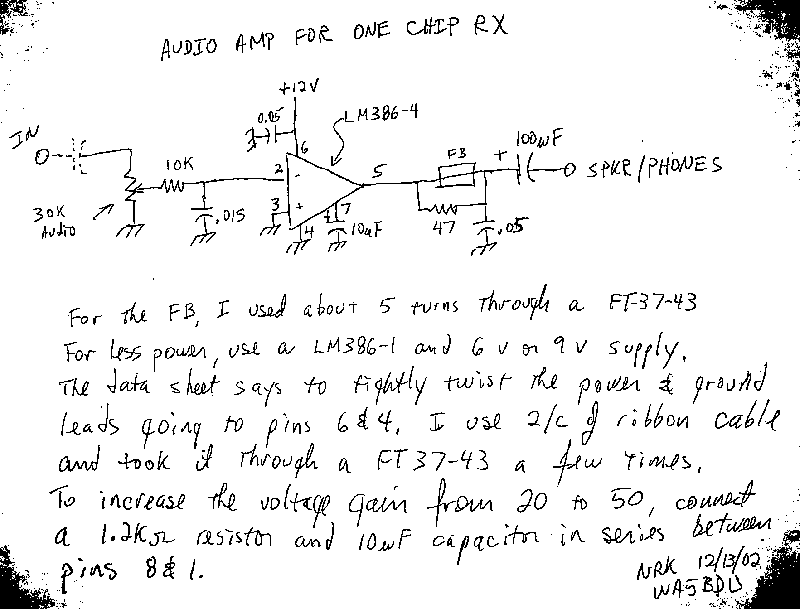 AUDIO AMP FOR ONE CHIP RX
+12V
0.05
LM386-4
IN
10K
6
2
-
5
FB
+
100uF
SPKR/PHONES
30K
Audio
.015
3
+
4
7
10uF
47
.05
For the FB, I used about 5 turns through a FT-37-43
For less power, use a LM386-1 and 6 v or 9 v supply.
The data sheet says to tightly twist the power & ground
leads going to pins 6 & 4. I use 2/c of ribbon cable
and took it through a FT 37-43 a few times.
To increase the voltage gain from 20 to 50, connect
a 1.2KΩ resistor and 10uF capacitor in series between
pins 8 & 1.
NRK 12/13/02
WA5BDU